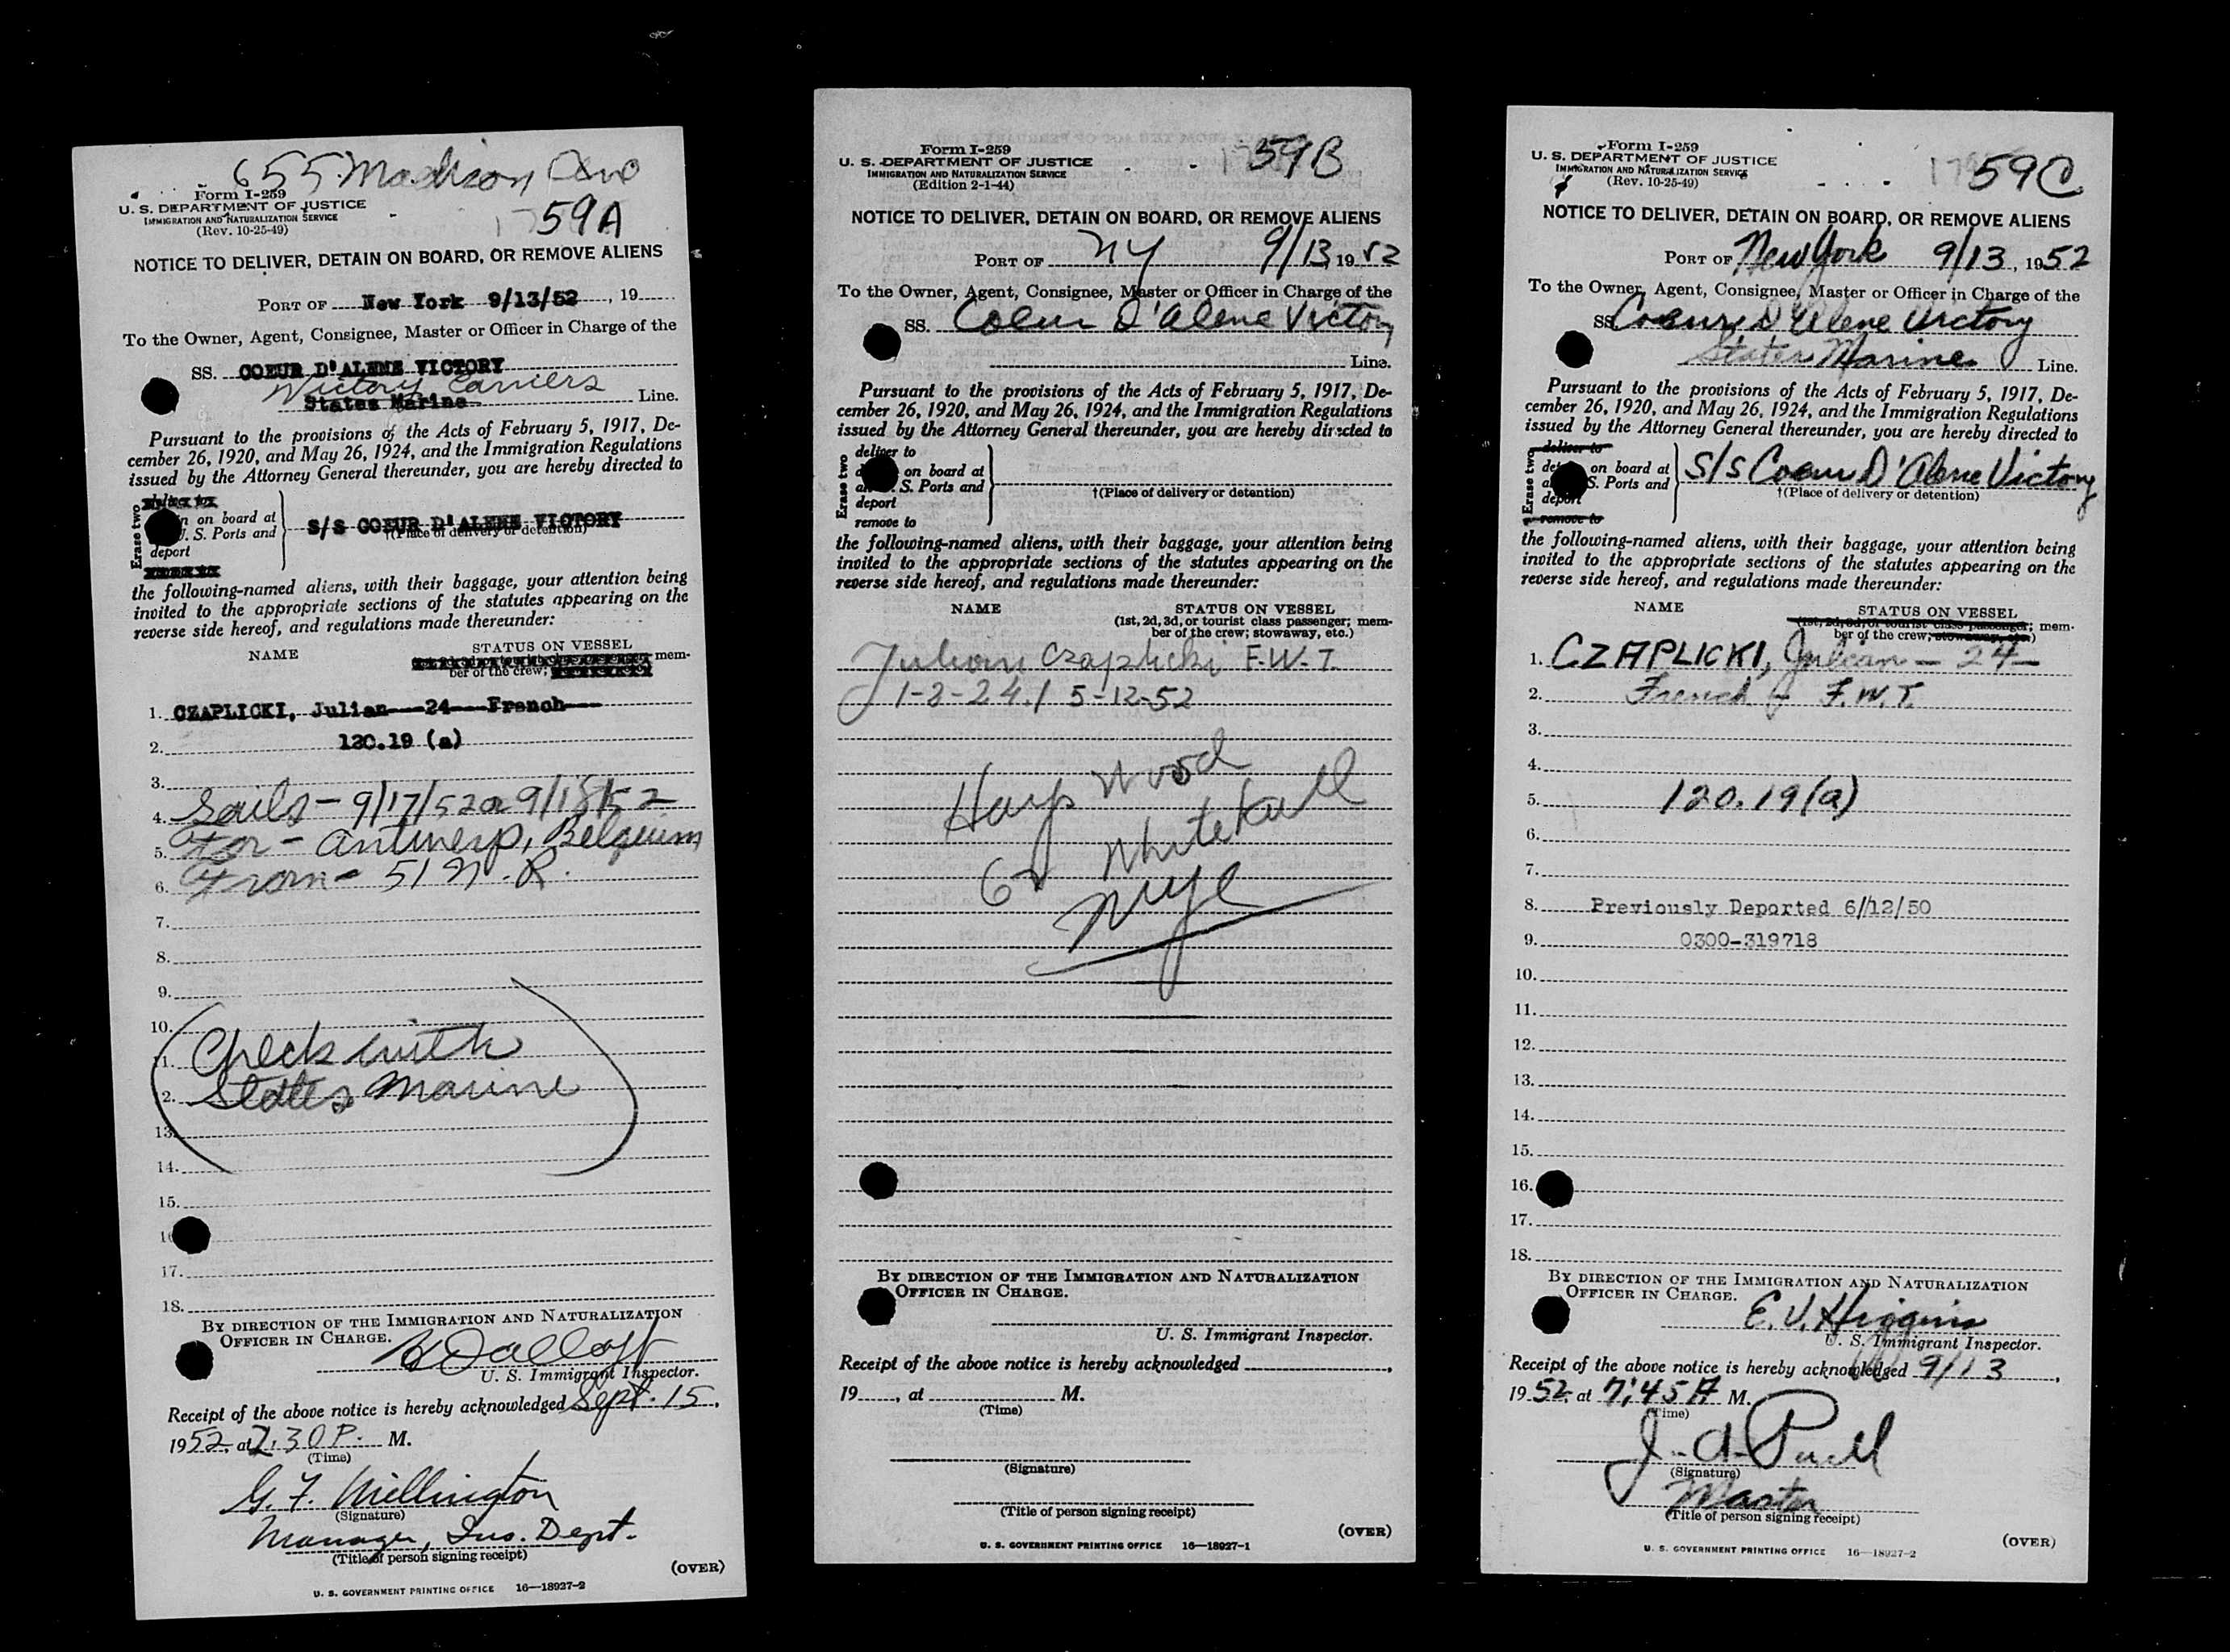 655 Madison Ave
Form I-259
U. S. DEPARTMENT OF JUSTICE
IMMIGRATION AND NATURALIZATION SERVICE
(Rev. 10-25-49)
59A
NOTICE TO DELIVER, DETAIN ON BOARD, OR REMOVE ALIENS
PORT OF New York 9/13/52, 19
To the Owner, Agent, Consignee, Master or Officer in Charge of the
SS. COEUR D'ALENE VICTORY
Victory Carriers
States Marine Line.
Pursuant to the provisions of the Acts of February 5, 1917, De-
cember 26, 1920, and May 26, 1924, and the Immigration Regulations
issued by the Attorney General thereunder, you are hereby directed to
Erase two
n on board at
U. S. Ports and
deport
s/s COEUR D'ALENE VICTORY
†(Place of delivery or detention)
the following-named aliens, with their baggage, your attention being
invited to the appropriate sections of the statutes appearing on the
reverse side hereof, and regulations made thereunder:
NAME STATUS ON VESSEL
mem-
ber of the crew;
1. CZAPLICKI, Julian---24---French---
2. 120.19 (a)
3.
4. Sails - 9/17/52 or 9/18/52
5. For - Antwerp, Belgium
6. From - 51 N. R.
7.
8.
9.
10.
11. Check with
12. States Marine
13.
14.
15.
16
17.
18.
BY DIRECTION OF THE IMMIGRATION AND NATURALIZATION
OFFICER IN CHARGE.
U. S. Immigrant Inspector.
Receipt of the above notice is hereby acknowledged Sept. 15,
1952, at 2:30 P. M.
(Time)
G. F. Millington
(Signature)
Manager, Ins. Dept.
(Title of person signing receipt)
(OVER)
U. S. GOVERNMENT PRINTING OFFICE 16—18927-2
Form I-259
U. S. DEPARTMENT OF JUSTICE
IMMIGRATION AND NATURALIZATION SERVICE
(Edition 2-1-44)
59B
NOTICE TO DELIVER, DETAIN ON BOARD, OR REMOVE ALIENS
PORT OF NY 9/13, 1952
To the Owner, Agent, Consignee, Master or Officer in Charge of the
SS. Coeur D'Alene Victory
Line.
Pursuant to the provisions of the Acts of February 5, 1917, De-
cember 26, 1920, and May 26, 1924, and the Immigration Regulations
issued by the Attorney General thereunder, you are hereby directed to
Erase two
deliver to
on board at
S. Ports and
deport
remove to
†(Place of delivery or detention)
the following-named aliens, with their baggage, your attention being
invited to the appropriate sections of the statutes appearing on the
reverse side hereof, and regulations made thereunder:
NAME STATUS ON VESSEL
(1st, 2d, 3d, or tourist class passenger; mem-
ber of the crew; stowaway, etc.)
Julian Czaplicki F.W.T.
1-8-24. / 5-12-52
Hayswood
Whitehall
NYC
BY DIRECTION OF THE IMMIGRATION AND NATURALIZATION
OFFICER IN CHARGE.
U. S. Immigrant Inspector.
Receipt of the above notice is hereby acknowledged,
19, at M.
(Time)
(Signature)
(Title of person signing receipt)
(OVER)
U. S. GOVERNMENT PRINTING OFFICE 16—18927-1
Form I-259
U. S. DEPARTMENT OF JUSTICE
IMMIGRATION AND NATURALIZATION SERVICE
(Rev. 10-25-49)
59C
NOTICE TO DELIVER, DETAIN ON BOARD, OR REMOVE ALIENS
PORT OF New York 9/13, 1952
To the Owner, Agent, Consignee, Master or Officer in Charge of the
SS Coeur D'Alene Victory
States Marine Line.
Pursuant to the provisions of the Acts of February 5, 1917, De-
cember 26, 1920, and May 26, 1924, and the Immigration Regulations
issued by the Attorney General thereunder, you are hereby directed to
Erase two
deliver to
on board at
S. Ports and
deport
remove to
S/S Coeur D'Alene Victory
†(Place of delivery or detention)
the following-named aliens, with their baggage, your attention being
invited to the appropriate sections of the statutes appearing on the
reverse side hereof, and regulations made thereunder:
NAME STATUS ON VESSEL
(1st, 2d, 3d, or tourist class passenger; mem-
ber of the crew; stowaway, etc.)
1. CZAPLICKI, Julian - 24 -
2. French - F.W.T.
3.
4.
5. 120.19(a)
6.
7.
8. Previously Deported 6/12/50
9. 0300-319718
10.
11.
12.
13.
14.
15.
16.
17.
18.
BY DIRECTION OF THE IMMIGRATION AND NATURALIZATION
OFFICER IN CHARGE.
E. V. Higgins
U. S. Immigrant Inspector.
Receipt of the above notice is hereby acknowledged 9/13,
1952, at 7:45 A M.
(Time)
(Signature)
Master
(Title of person signing receipt)
(OVER)
U. S. GOVERNMENT PRINTING OFFICE 16—18927-2